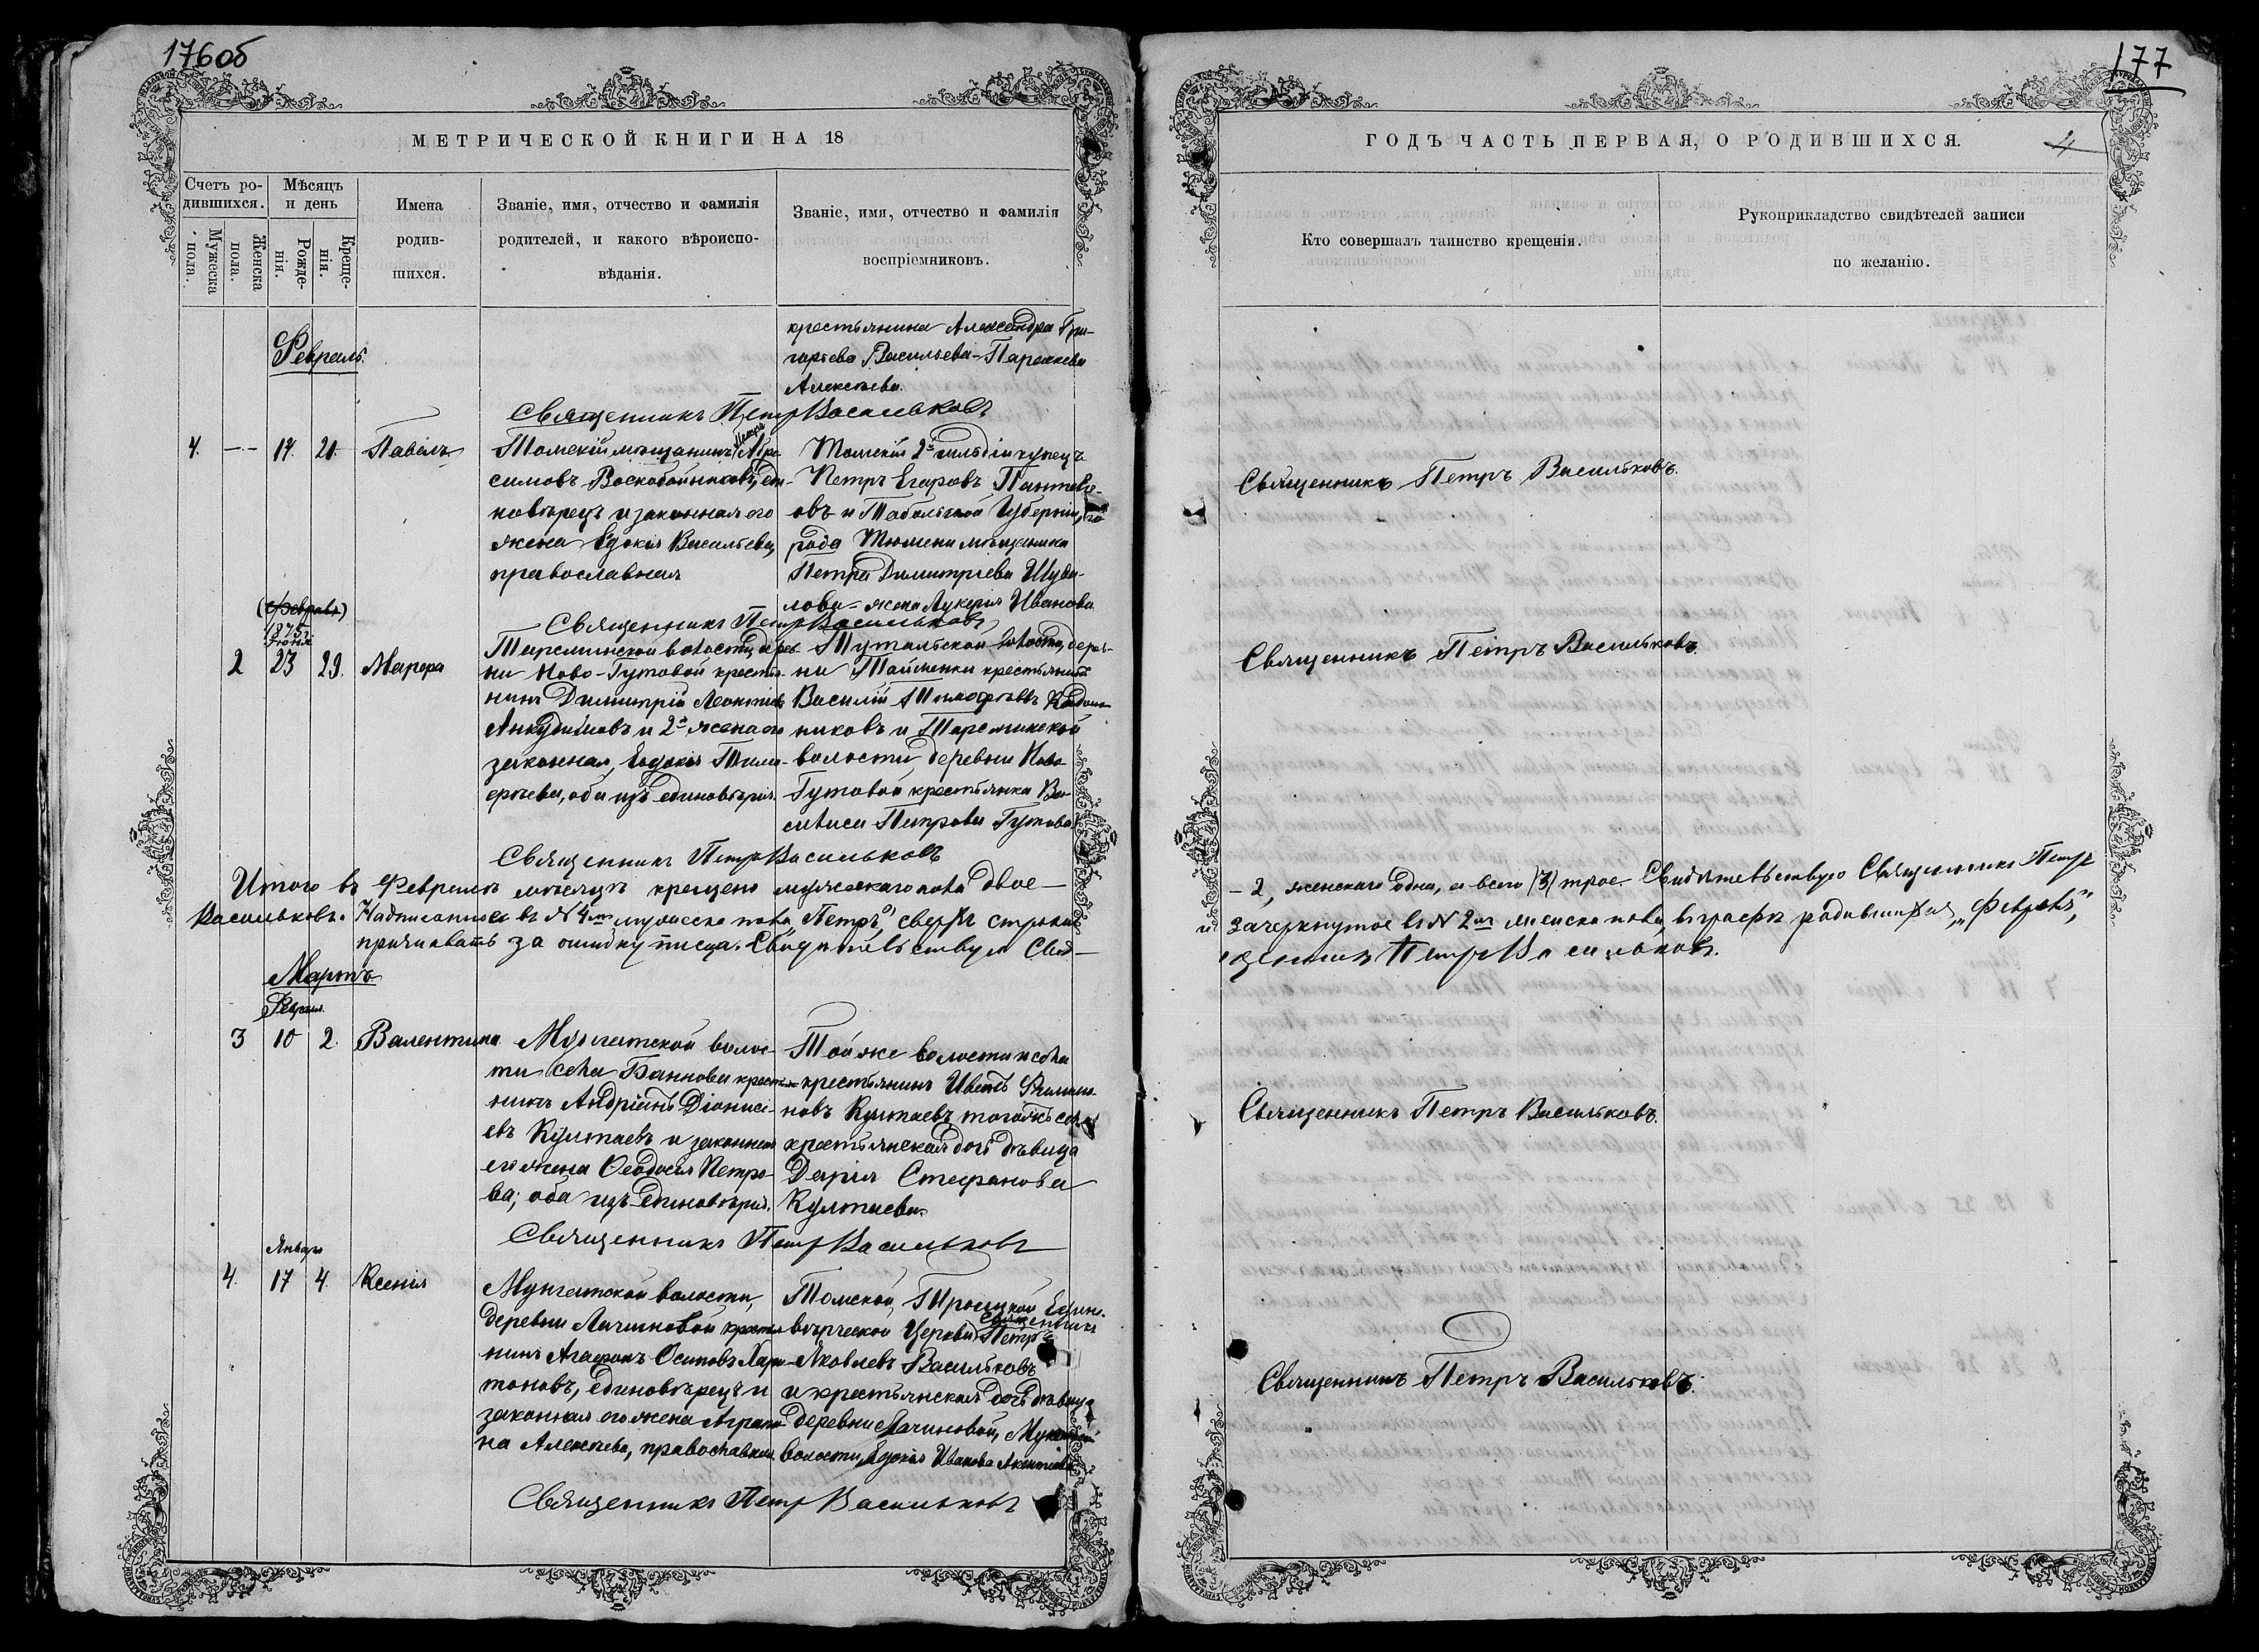 176об
МЕТРИЧЕСКОЙ КНИГИ НА 18
Счетъ ро-
дившихся.
Мужеска
пола.
Женска
пола.
Мѣсяцъ
и день
Рожде-
нія.
Креще-
нія.
Имена
родив-
шихся.
Званіе, имя, отчество и фамилія
родителей, и какого вѣроиспо-
вѣданія.
Званіе, имя, отчество и фамилія
воспріемниковъ.
Февраль.
крестьянина Александра Гри-
горьева Васильева Параскева
Алексѣева.
Священникъ Петръ Васильковъ
4. — 14. 21. Павелъ
Томскій мѣщанинъ Петръ
симовъ Воскобойниковъ, еди-
новѣрецъ и законная его
жена Евдокія Васильева,
православная
Томскій 2й гильдіи купецъ
Петръ Егоровъ Пантеле-
овъ и Тобольской Губерніи, го-
рода Тюмени мѣщанина
Петра Димитріева Шува-
лова жена Лукерія Иванова
Священникъ Петръ Васильковъ
(Февраль)
1875
Іюня
2 23 29. Марѳа
Тарсминской волости, дерев-
ни Ново-Гутовой крестья-
нинъ Димитрій Леонтіевъ
Анкудиновъ и 2я жена его
законная, Евдокія Тимо-
ѳеева, оба изъ единовѣрія.
Тутальской волости, дерев-
ни Тайменки крестьянинъ
Василій Тимоѳѣевъ
никовъ и Тарсминской
волости, деревни Ново
Гутовой крестьянка Ва-
силиса Петрова Гутова
Священникъ Петръ Васильковъ
Итого въ Февралѣ мѣсяцѣ крещено мужескаго пола двое —
Васильковъ. Надписанное въ N 4мъ мужеска пола „Петръ“, сверхъ строки
признавать за ошибку писца. Свидѣтельствую Свя-
Мартъ.
Февраля.
3 10 2. Валентина
Мунгатской волос-
ти села Баннова крестья-
нинъ Андріанъ Діонисі-
евъ Култаевъ и законная
его жена Ѳеодосія Петро-
ва; оба изъ единовѣрія.
Той же волости и села
крестьянинъ Иванъ Филимо-
новъ Култаевъ того же села
крестьянская дочь дѣвица
Дарія Стефанова
Култаева.
Священникъ Петръ Васильковъ
Январь
4. 17 4. Ксенія
Мунгатской волости,
деревни Лачиновой крестья-
нинъ Агафонъ Осиповъ Хари-
тоновъ, единовѣрецъ и
законная его жена Агрипи-
на Алексѣева, православная
Томской, Троицкой Едино-
вѣрческой Церкви Священникъ Петръ
Яковлевъ Васильковъ
и крестьянская дочь дѣвица
деревни Лачиновой, Мунгатской
волости, Евдокія Иванова
Священникъ Петръ Васильковъ
177
ГОДЪ ЧАСТЬ ПЕРВАЯ, О РОДИВШИХСЯ.
4
Кто совершалъ таинство крещенія.
Рукоприкладство свидѣтелей записи
по желанію.
Священникъ Петръ Васильковъ.
Священникъ Петръ Васильковъ.
— 2, женскаго одна, а всего (3) трое. Свидѣтельствую Священникъ Петръ
и зачеркнутое въ N 2мъ женска пола, въ графѣ родившихся, „Февраль“,
щенникъ Петръ Васильковъ.
Священникъ Петръ Васильковъ.
Священникъ Петръ Васильковъ.